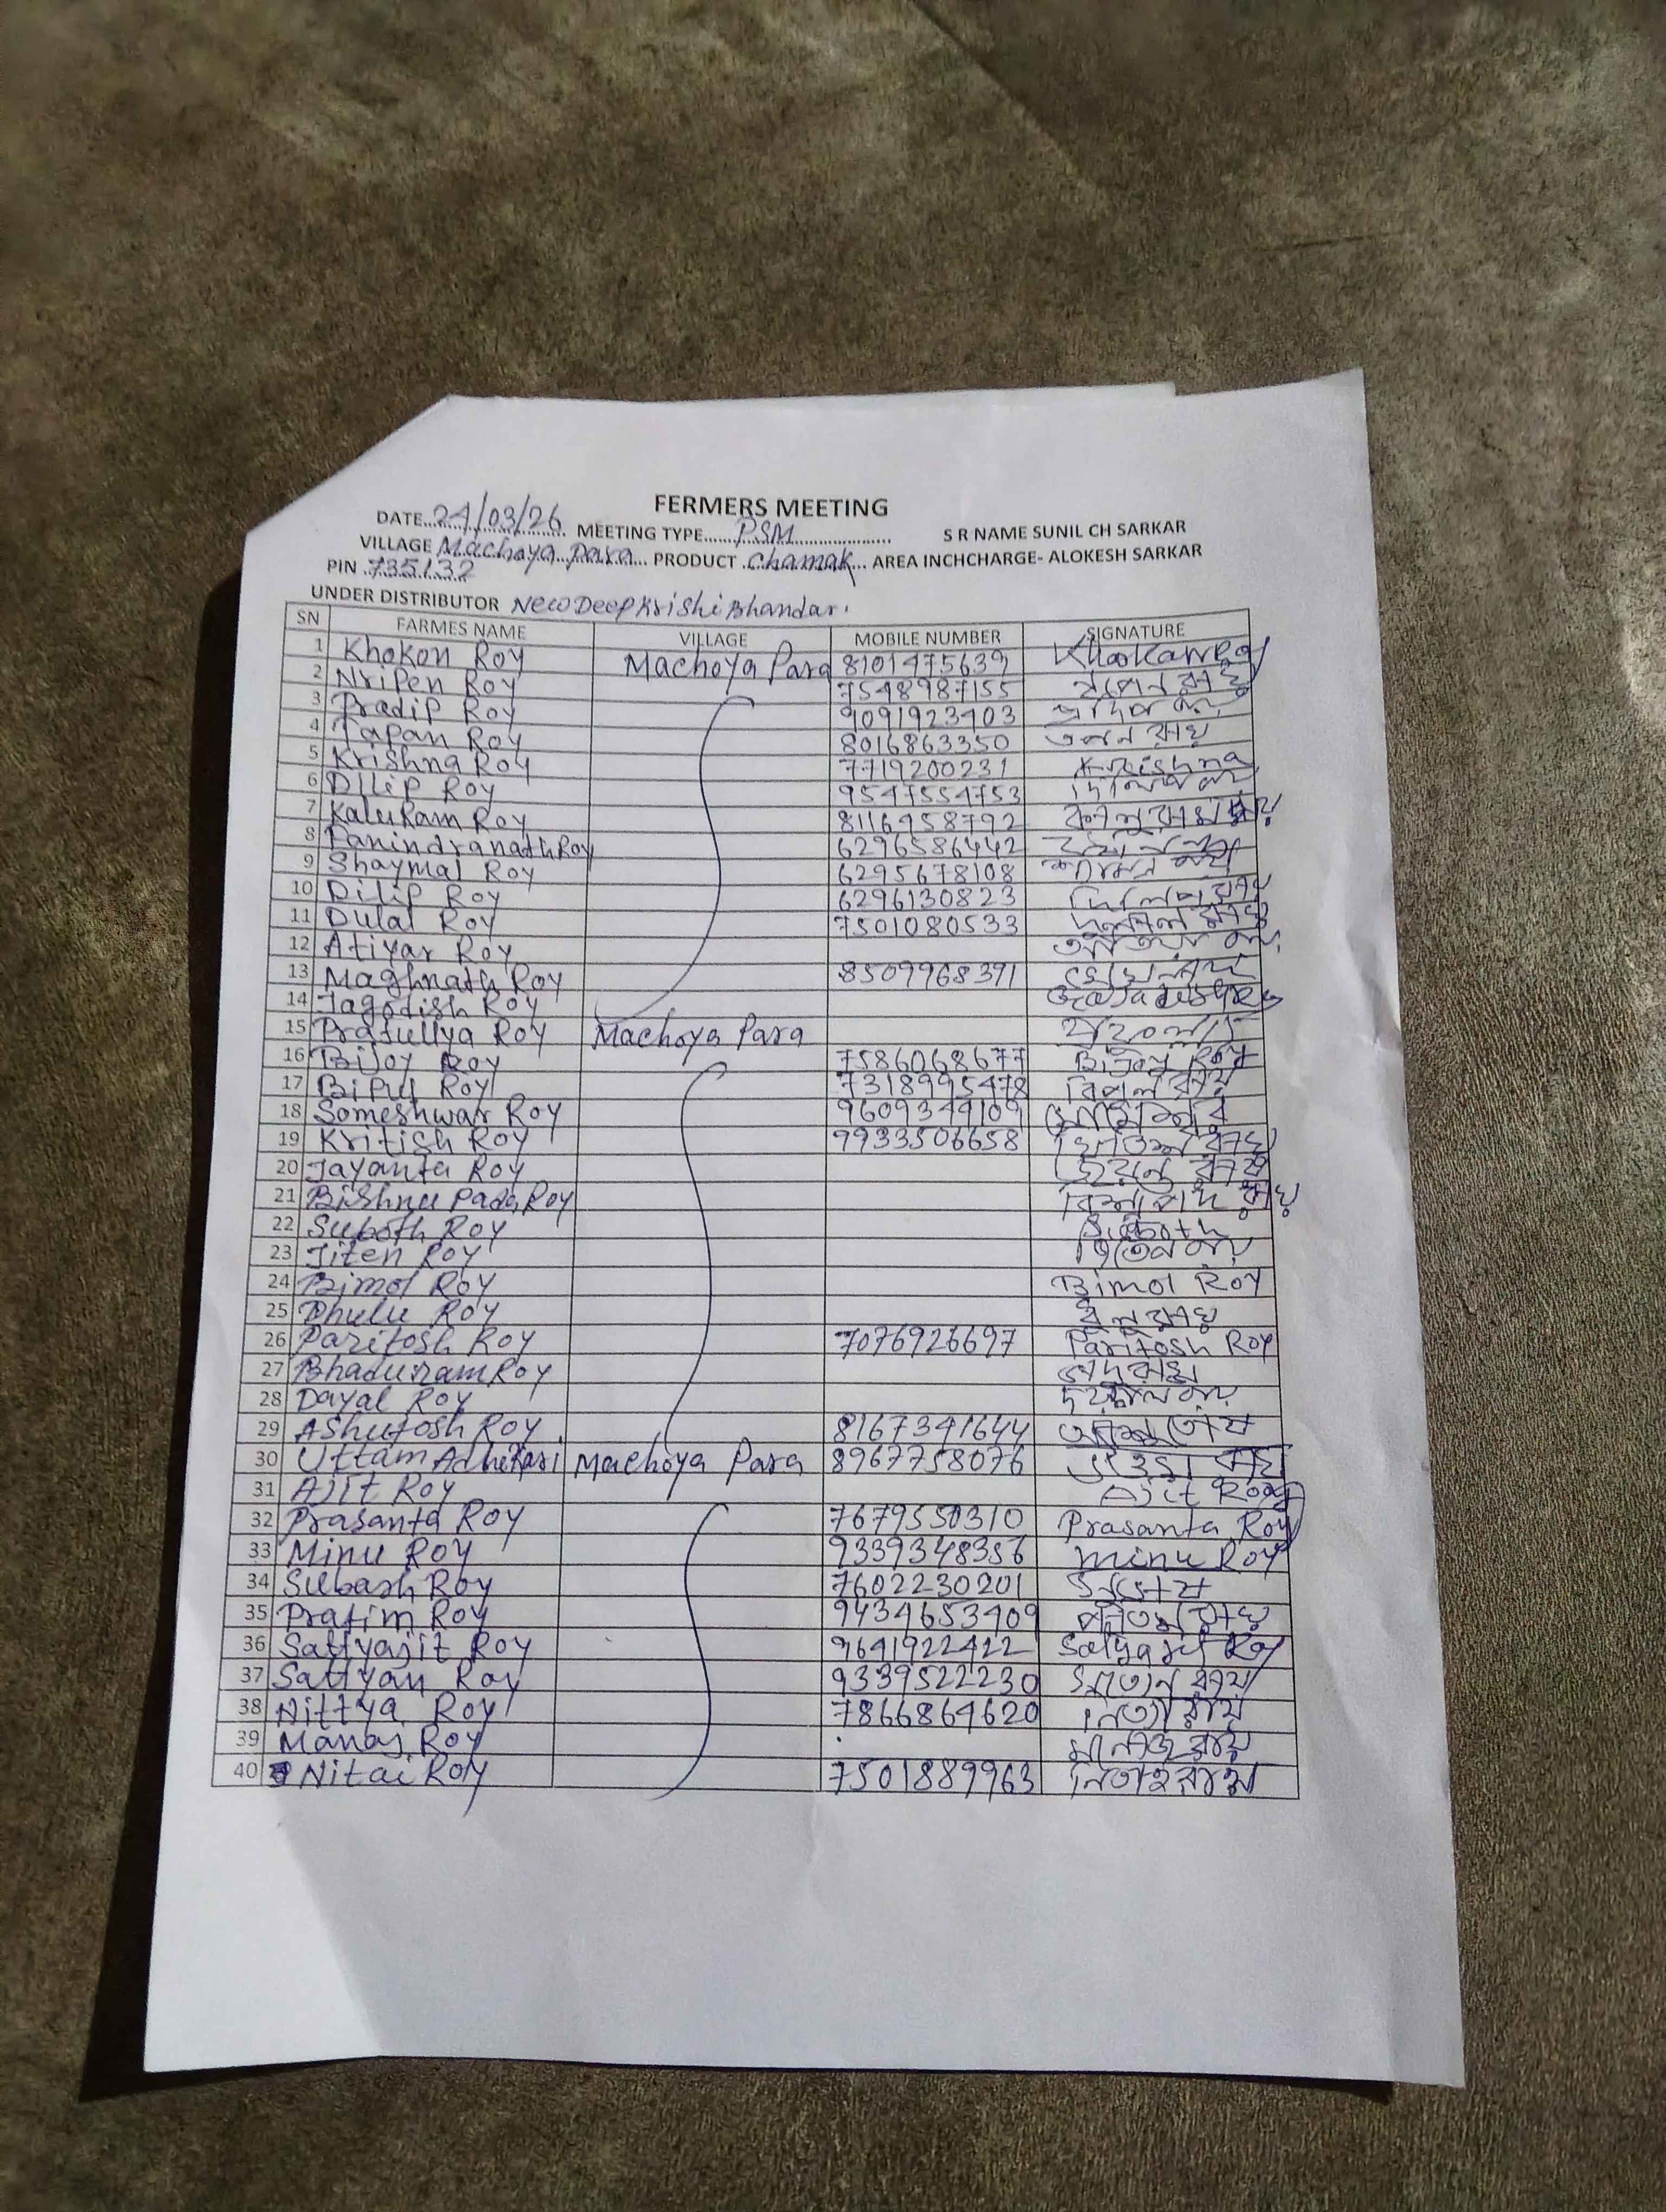 FERMERS MEETING
DATE 24/03/26 MEETING TYPE PSM S R NAME SUNIL CH SARKAR
VILLAGE Machoya Para PRODUCT Chamak AREA INCHCHARGE- ALOKESH SARKAR
PIN 735132
UNDER DISTRIBUTOR New Deep Krishi Bhandar.
SN FARMES NAME VILLAGE MOBILE NUMBER SIGNATURE
1 Khokon Roy Machoya Para 8101475639
2 Nripen Roy 7548987155 নৃপেন রায়
3 Pradip Roy 9091923403
4 Tapan Roy 8016863350 তপন রায়
5 Krishna Roy 7719200231 Krishna
6 Dilip Roy 9547554753
7 Kaluram Roy 8116458792
8 Panindranath Roy 6296586442
9 Shaymal Roy 6295678108
10 Dilip Roy 6296130823
11 Dulal Roy 7501080533
12 Atiyar Roy
13 Maghnath Roy 8509968391
14 Jagodish Roy
15 Prafullya Roy Machoya Para
16 Bijoy Roy 7586068677 Bijoy Roy
17 Bipul Roy 7318995478 বিপুল রায়
18 Someshwar Roy 9609349109
19 Kritish Roy 9933506658
20 Jayanta Roy জয়ন্ত রায়
21 Bishnu Pada Roy
22 Suboth Roy
23 Jiten Roy
24 Bimol Roy Bimol Roy
25 Dhulu Roy
26 Paritosh Roy 7076926697 Paritosh Roy
27 Bhaduram Roy
28 Dayal Roy
29 Ashutosh Roy 8167341644
30 Uttam Adhikari Machoya Para 8967758076
31 Ajit Roy Ajit Roy
32 Prasanta Roy 7679550310 Prasanta Roy
33 Minu Roy 9339348356 Minu Roy
34 Subash Roy 7602230201
35 Pratim Roy 9434653409
36 Sattyajit Roy 9641922422 Satyajit Roy
37 Sattyan Roy 9339522230
38 Nittya Roy 7866864620 নিত্য রায়
39 Manaj Roy
40 Nitai Roy 7501889963 নিতাই রায়